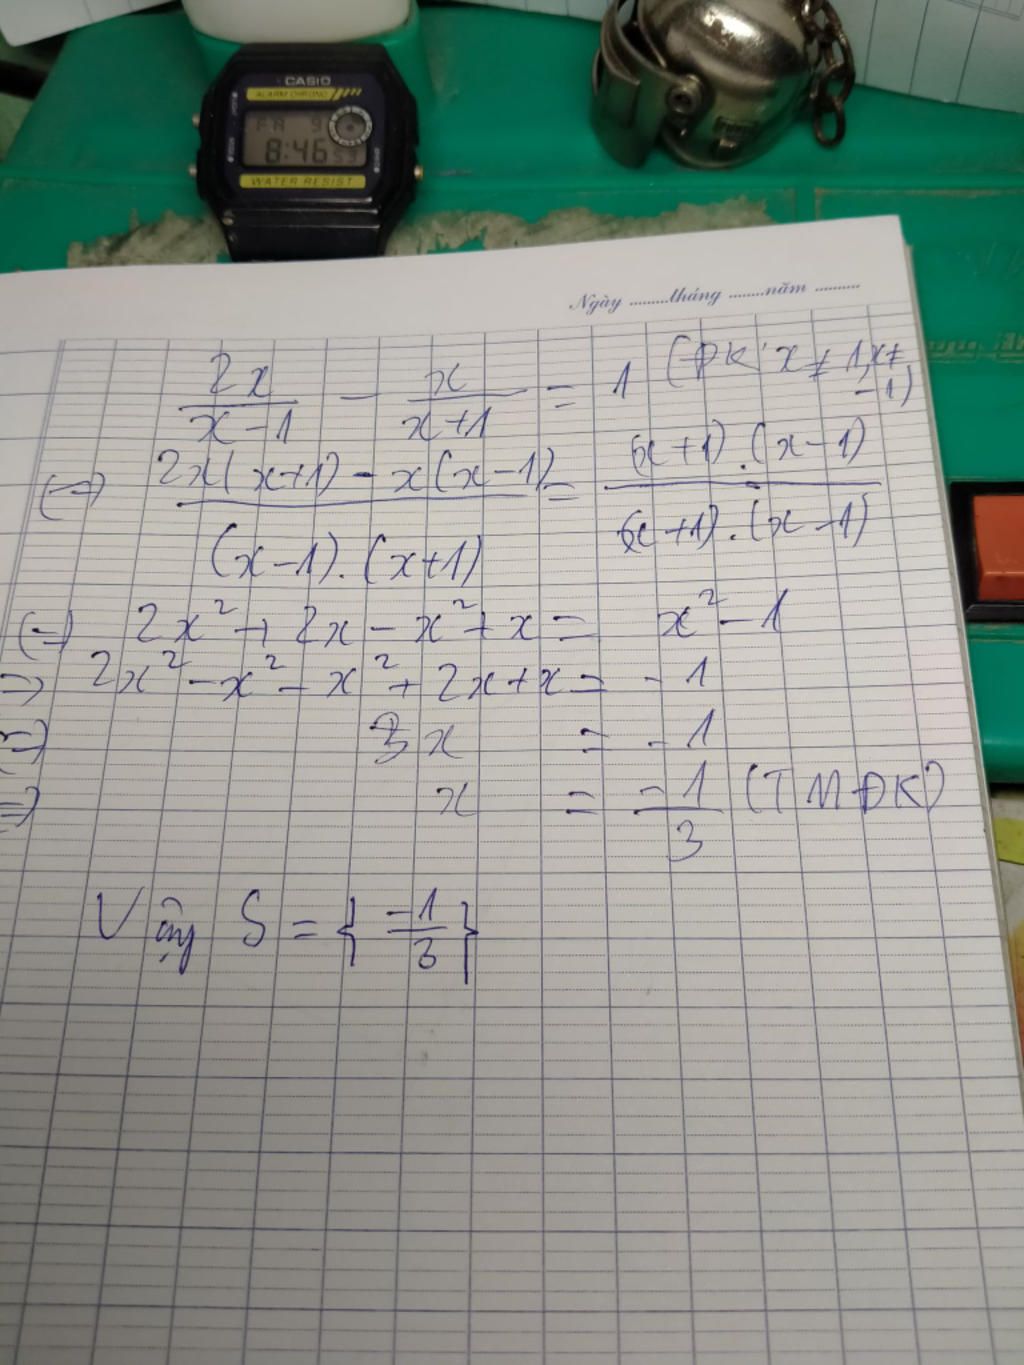 CASIO
ALARM CHRONO
FR 9
8:46 53
WATER RESIST
Ngày ..........tháng ........năm ..........
2x/(x-1) - x/(x+1) = 1 (ĐK: x ≠ 1, x ≠ -1)
(=) (2x(x+1) - x(x-1))/((x-1).(x+1)) = ((x+1).(x-1))/((x+1).(x-1))
(=) 2x² + 2x - x² + x = x² - 1
=) 2x² - x² - x² + 2x + x = -1
(=) 3x = -1
=) x = -1/3 (TMĐK)
Vậy S = { -1/3 }